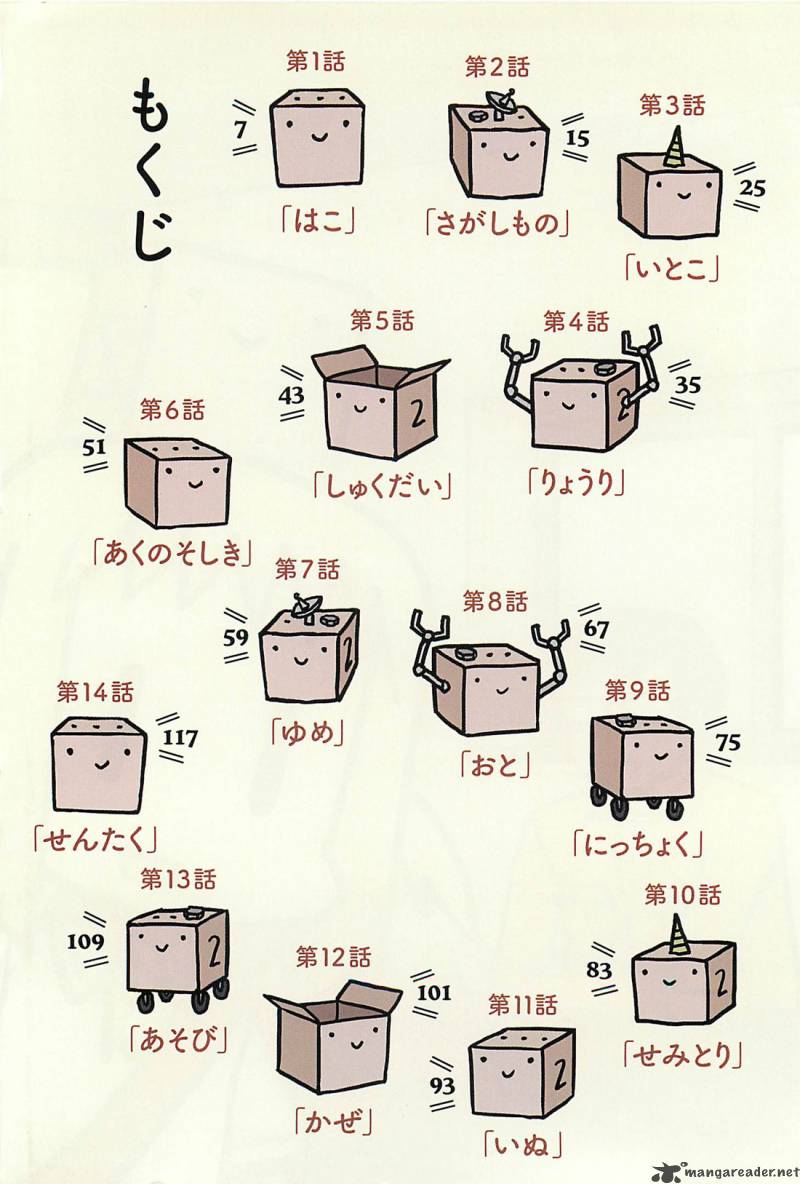 もくじ
第1話
7
「はこ」
第2話
15
「さがしもの」
第3話
25
「いとこ」
第4話
35
2
「りょうり」
第5話
43
2
「しゅくだい」
第6話
51
「あくのそしき」
第7話
59
2
「ゆめ」
第8話
67
「おと」
第9話
75
「にっちょく」
第10話
83
2
「せみとり」
第11話
93
2
「いぬ」
第12話
101
「かぜ」
第13話
109
2
「あそび」
第14話
117
「せんたく」
mangareader.net